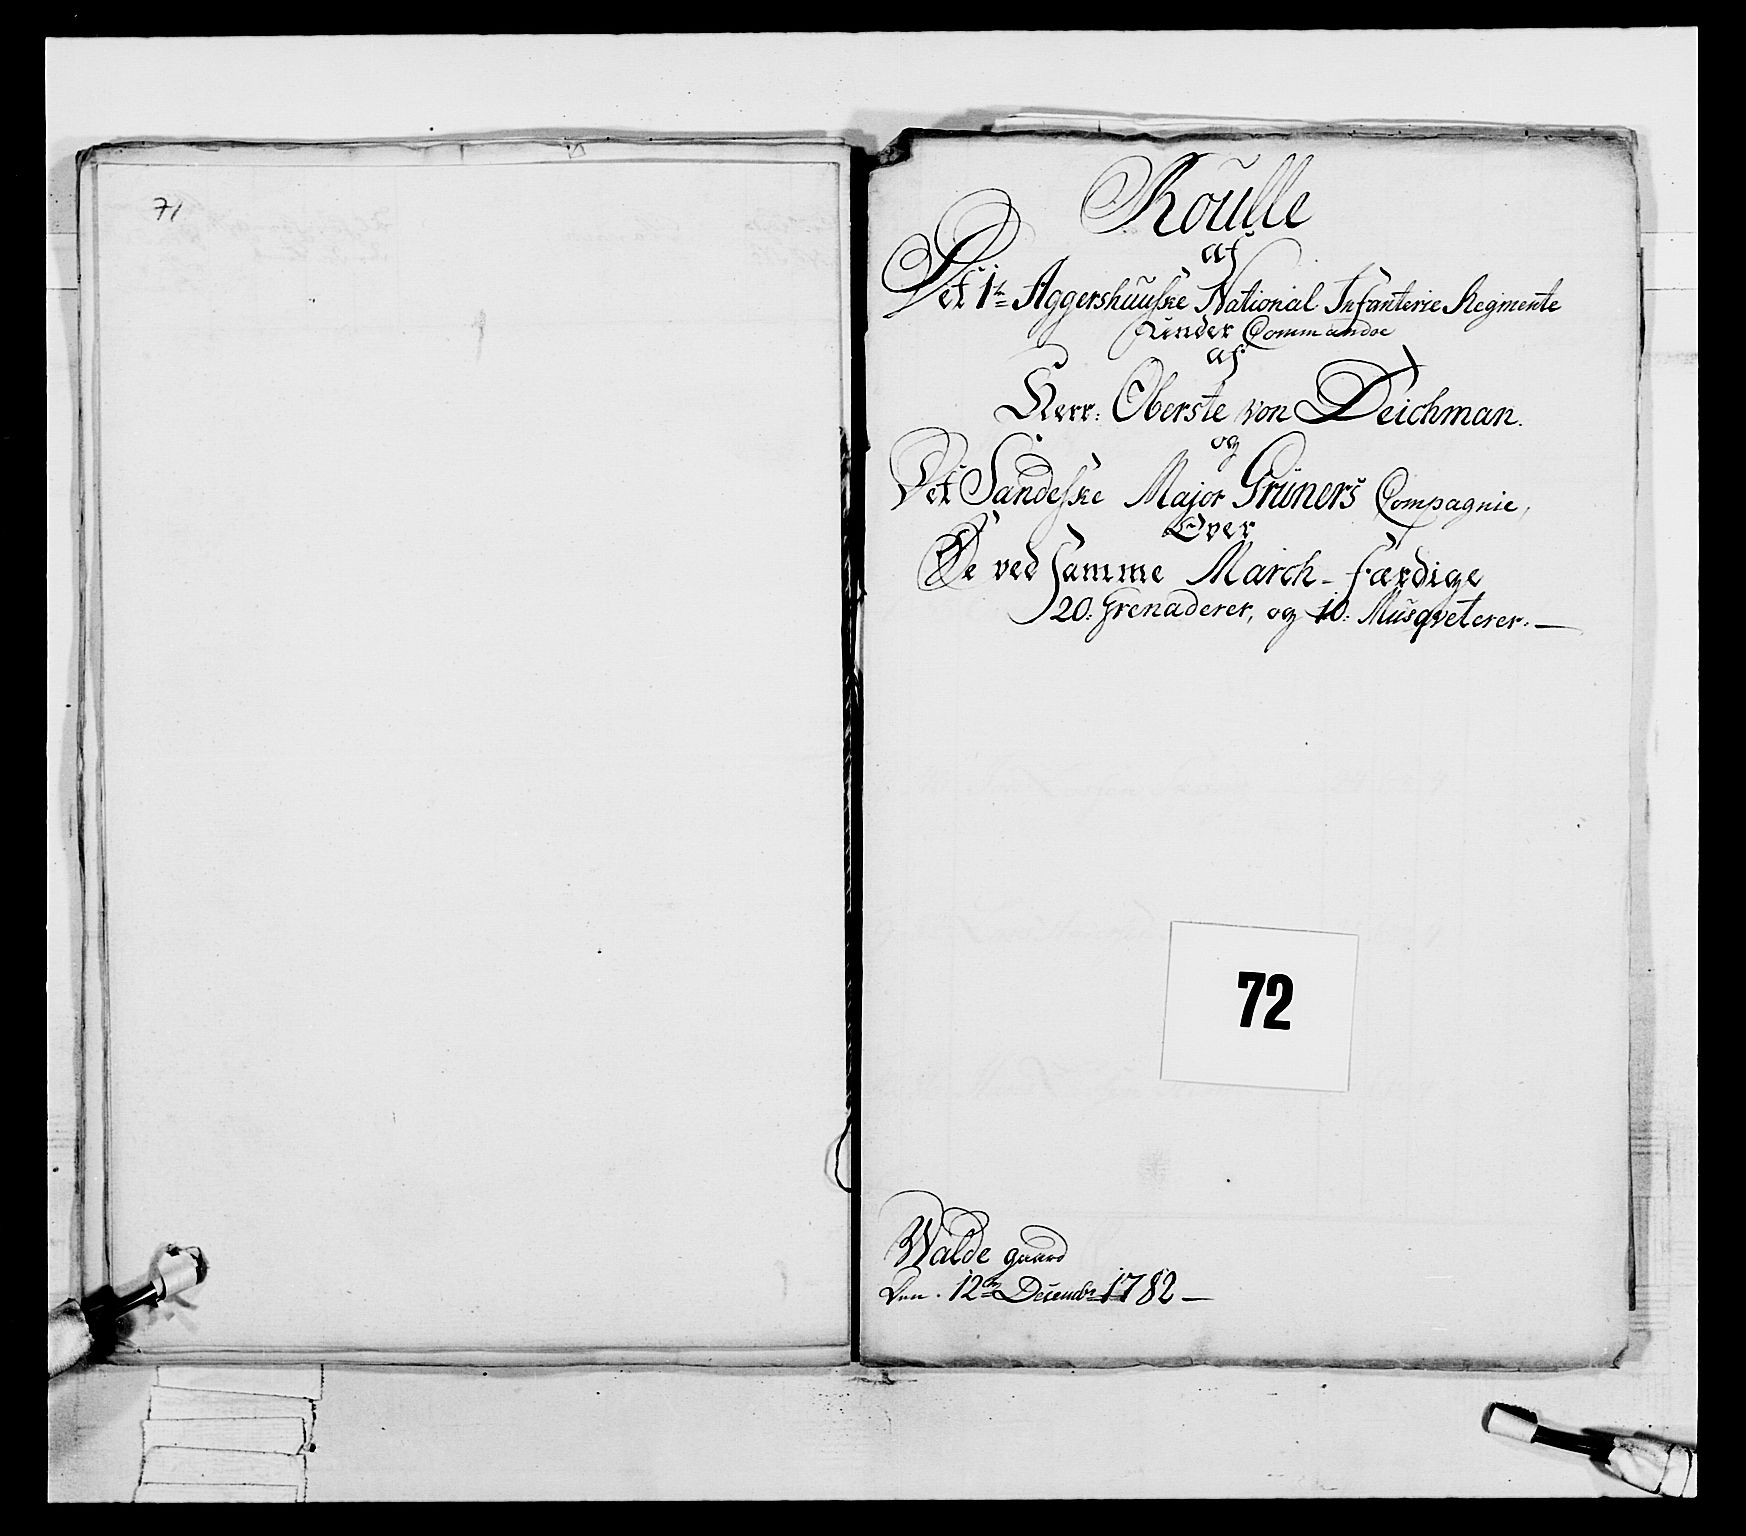 71
Roulle
af
Det 1te Aggershuuske National Infanterie Regimente
under Commandoe
af
Herr: Oberste von Deichman.
og
Det Sandeske Major Grüners Compagnie,
Over
De ved samme March-færdige
20: Grenaderer, og 10: Musqveterer. —
72
Walde gaard
Den. 12te Decembr 1782 —